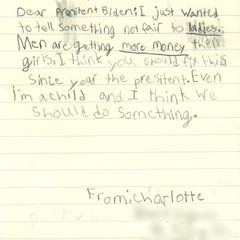 Dear President Biden: I just wanted
to tell something not fair to ladies.
Men are getting more money then
girls. I think you should fix this
since your the presitent. Even
I'm a child and I think we
should do something.
From: charlotte